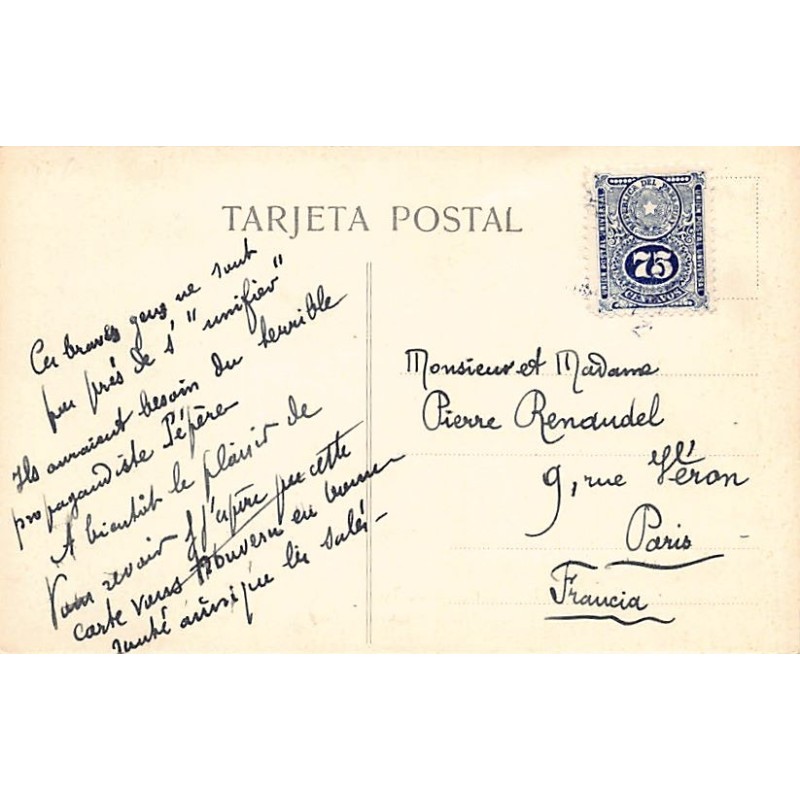 TARJETA POSTAL
REPUBLICA DEL PARAGUAY
75
CENTAVOS
Ces braves gens ne sont
pas près de s' "unifier"
Ils auraient besoin du terrible
propagandiste Pépère
A bientôt le plaisir de
Vous revoir j'espère que cette
carte vous trouvera en bonne
santé ainsi que les
Monsieur et Madame
Pierre Renaudel
9, rue Véron
Paris
Francia